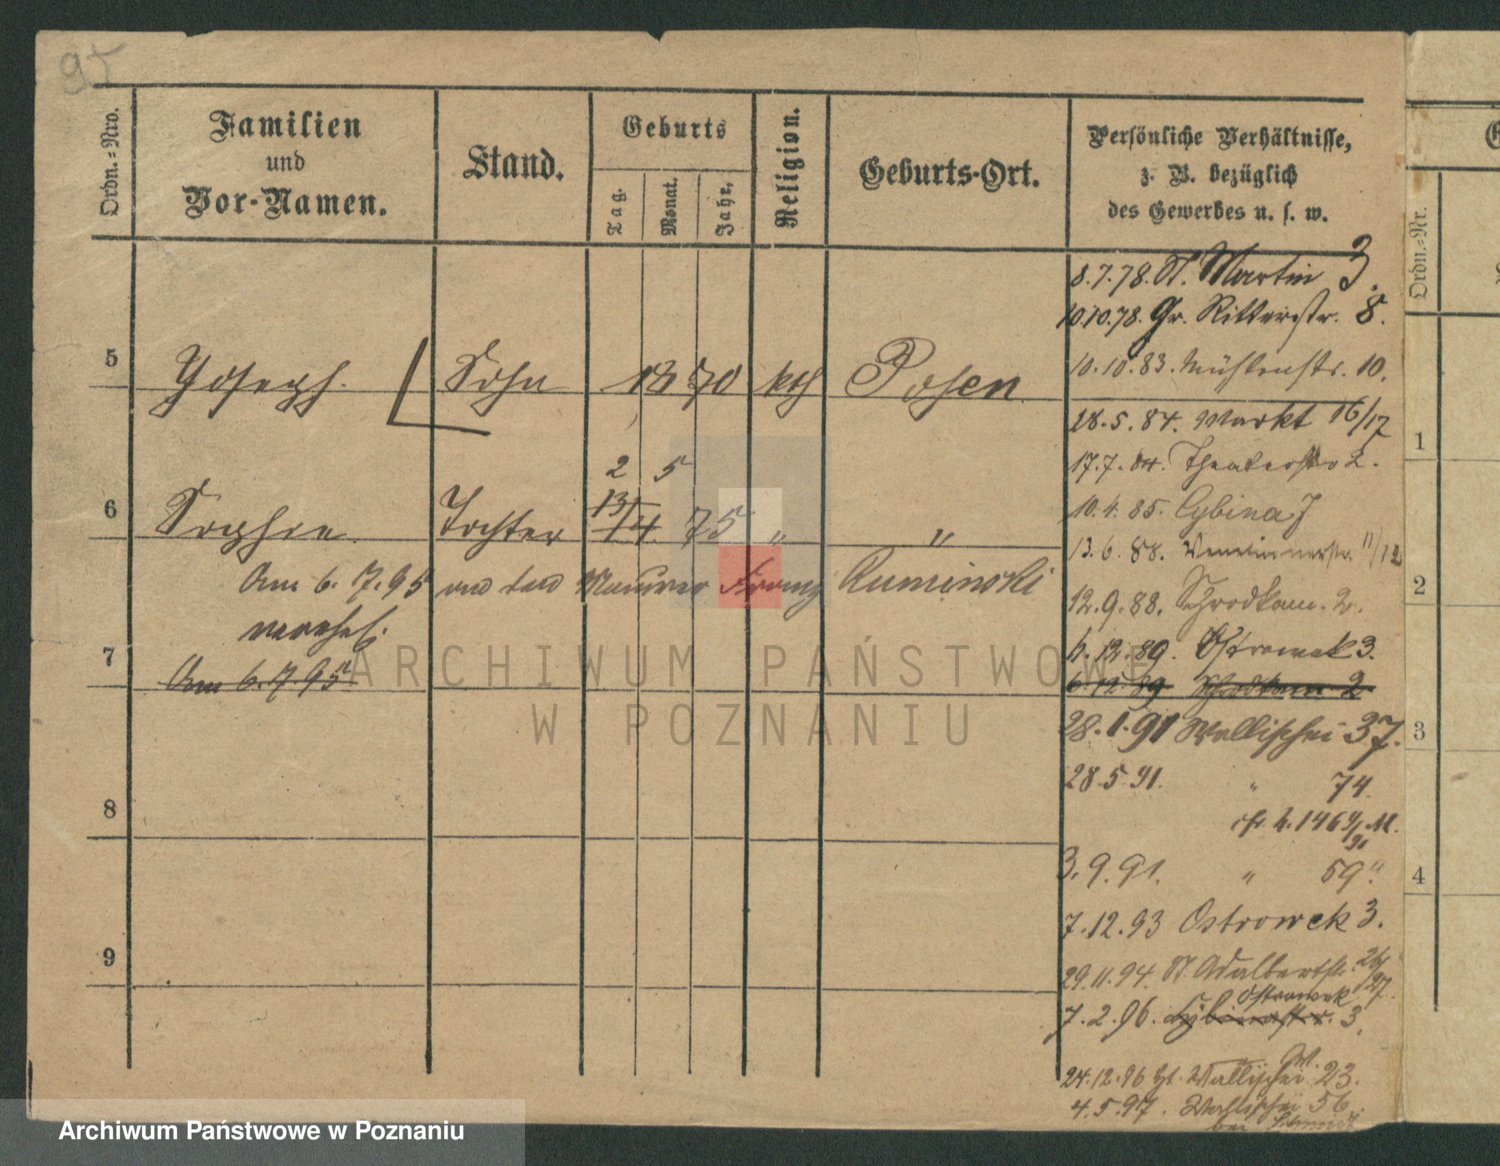 95
Ordn.=Nro.
Familien
und
Vor-Namen.
Stand.
Geburts
Tag.
Monat.
Jahr,
Religion.
Geburts-Ort.
Persönliche Verhältnisse,
z. B. bezüglich
des Gewerbes u. s. w.
8.7.78. St. Martin 3.
10.10.78. Gr. Ritterstr. 8.
10.10.83. Mühlenstr. 10.
5 Joseph. Sohn 18 70 kth Posen
28.5.84. Markt 16/17
17.7.84. Theaterstr 2.
2 5
6 Sophie Tochter 13/4 75 " "
10.4.85. Cybina 7
13.6.88. Venetianerstr. 11/12
Am 6.7.95 den Maurer Franz Ruminski
verehel.
12.9.88. Schrodkam. 2.
4.12.89. Ostrowek 3.
7
Am 6.7.95
6.12.89 Schrodkam 2
28.1.91 Wallischei 37.
28.5.91. " 74.
8
3.9.91. " 59"
7.12.93 Ostrowek 3.
9
29.11.94. St. Adalbertstr. 26/27.
Ostrowek
7.2.96. Cybinastr. 3.
24.12.96 Wallischei 23.
4.5.97. Wallischei 56.
bei
Ordn.=Nr.
1
2
3
4
ARCHIWUM PAŃSTWOWE
W POZNANIU
Archiwum Państwowe w Poznaniu